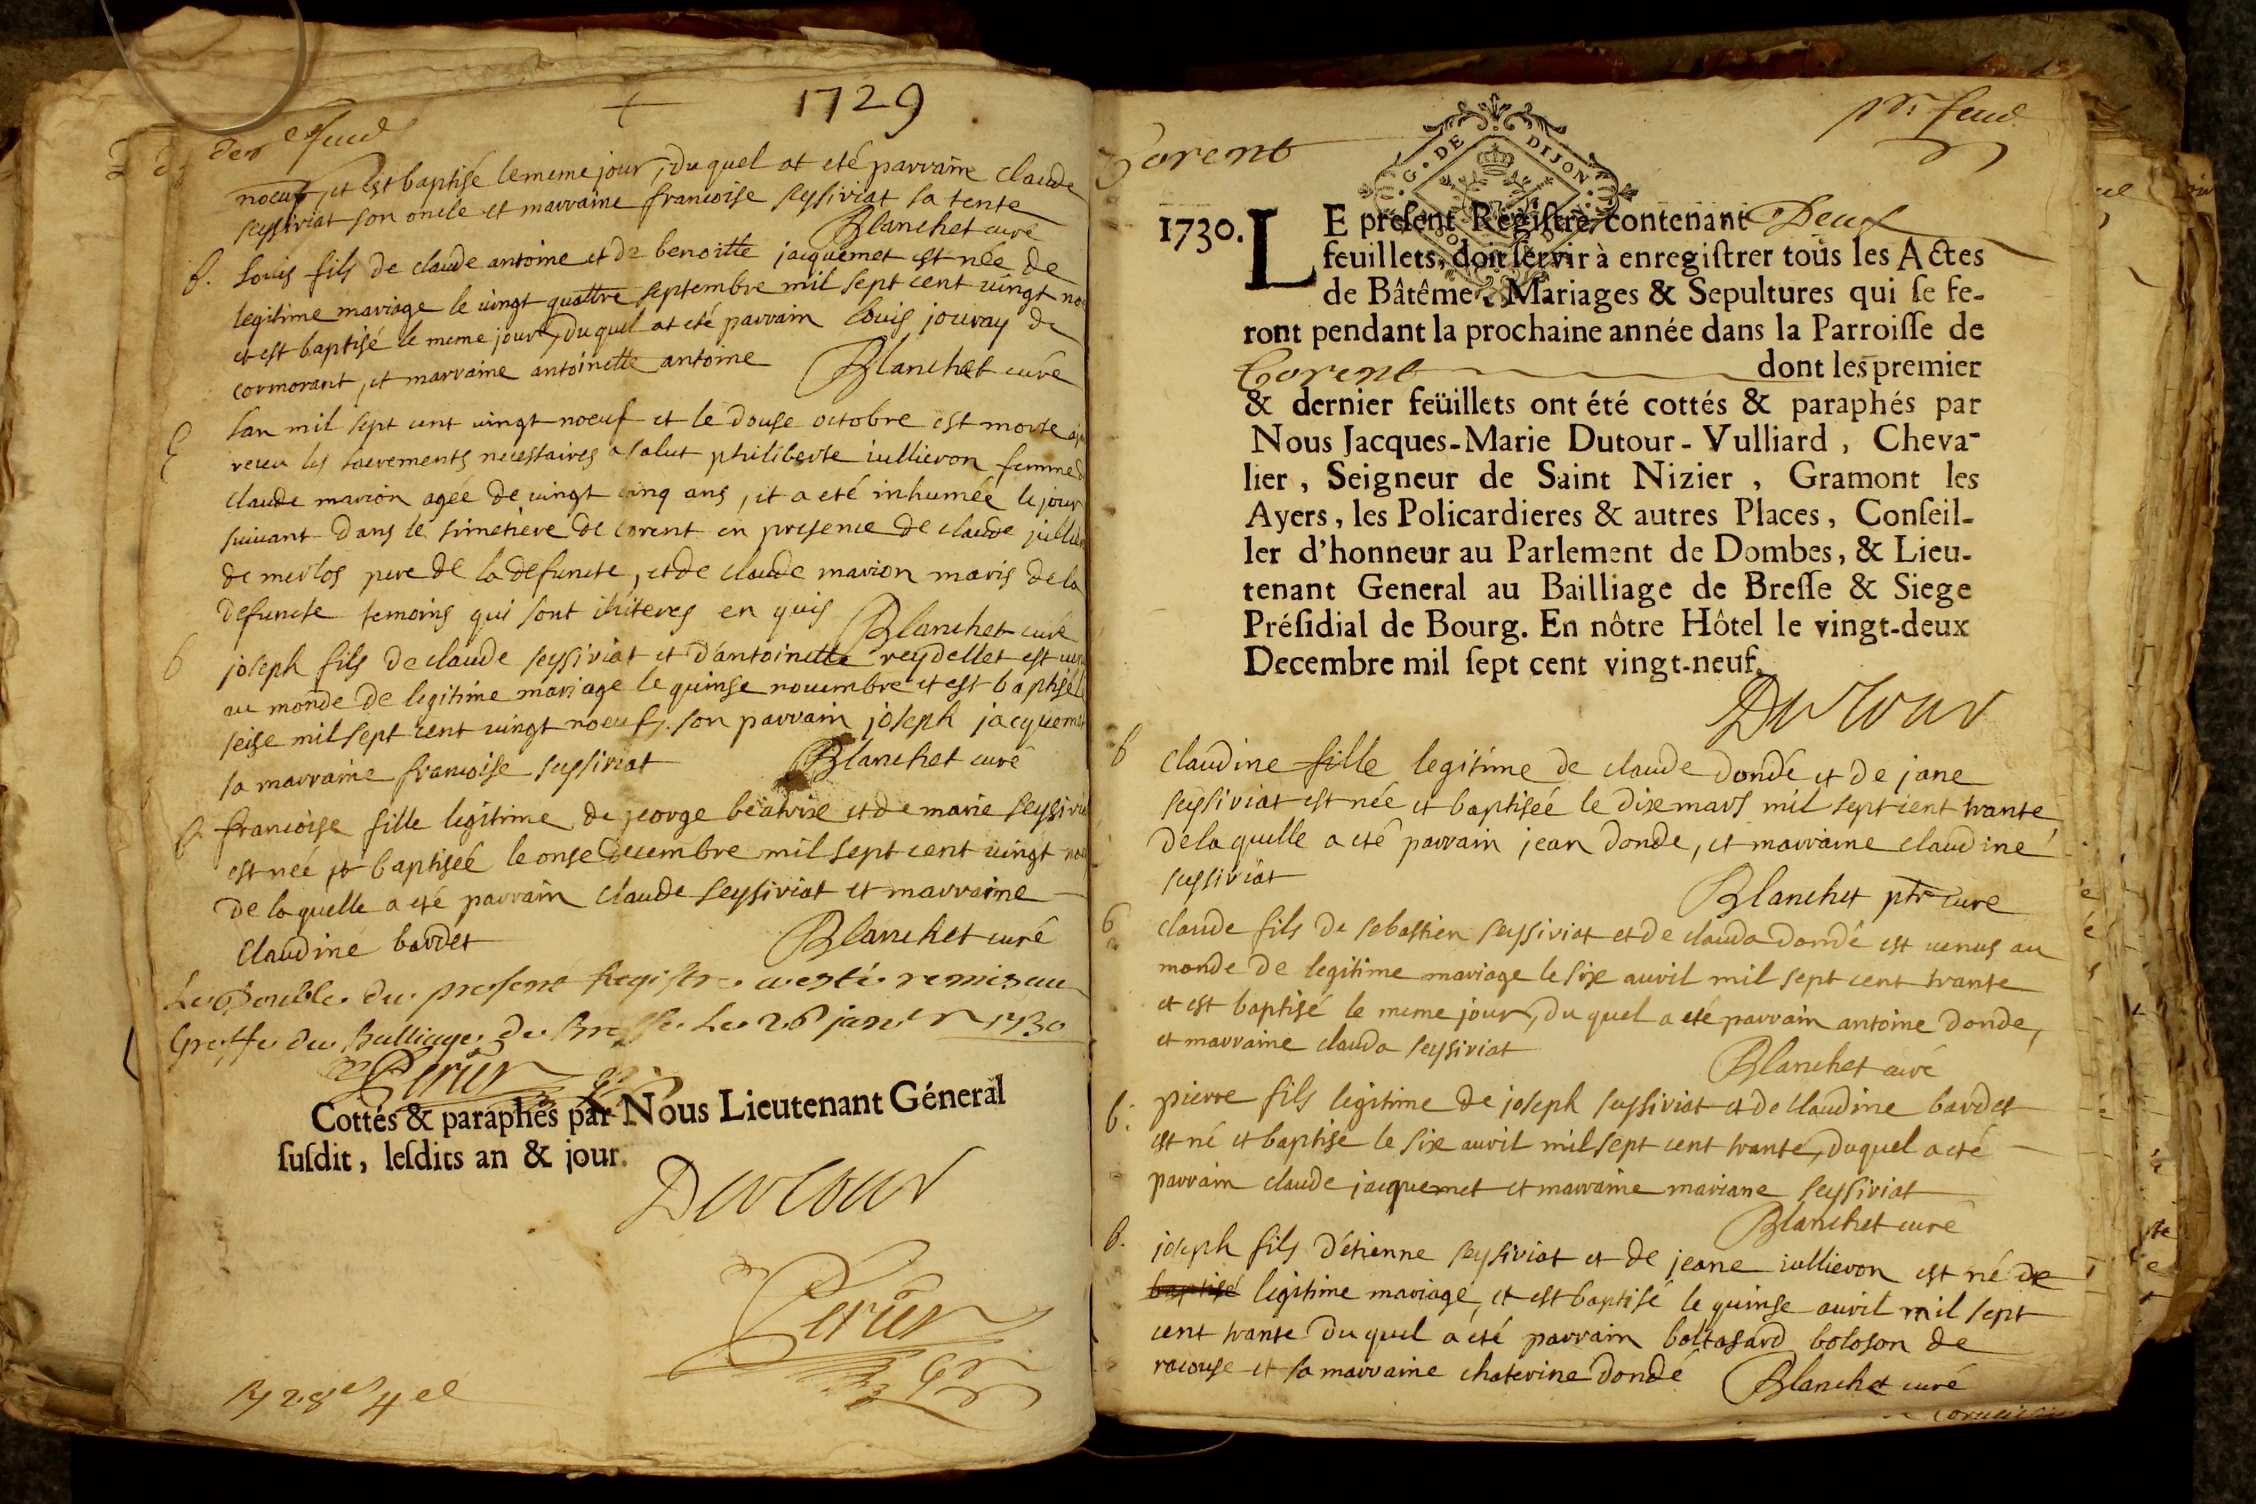 1729
der feuil
noeuf, et est baptisé le meme jour, du quel at eté parrain claude
seysiriat son oncle et marraine francoise seysiriat sa tente
Blanchet curé
b. louis fils de claude antoine et de benoitte jacquemet est née de
legitime mariage le vingt quattre septembre mil sept cent vingt no
et est baptisé le meme jour, du quel at eté parrain louis jouray de
cormorant, et marraine antoinette antoine Blanchet curé
lan mil sept cent vingt noeuf et le douse octobre est morte
receu les sacrements necessaires a salut philiberte iullieron femme d
claude marion agée de vingt cinq ans, et a eté inhumée le jour
suivant dans le simetiere de corent en presence de claude jullie
de merlos pere de la defuncte, et de claude marion maris de la
defuncte temoins qui sont illiteres en quis Blanchet curé
b joseph fils de claude seysiriat et d'antoinette reydellet est venu
au monde de legitime mariage le quinse novembre et est baptisé le
seise mil sept cent vingt noeuf. son parrain joseph jacquem
sa marraine francoise seysiriat Blanchet curé
b. francoise fille legitime de jeorge beatrix et de marie seysiri
est née et baptisée le onse decembre mil sept cent vingt no
de la quelle a eté parrain claude seysiriat et marraine
claudine bardet Blanchet curé
Le Double du present Registre a esté remis au
Greffe du Balliage de Bresse Le 26 janv 1730
Perier
Cottés & paraphés par Nous Lieutenant Géneral
susdit, lesdits an & jour.
Dutour
Perier
Corent
pr. feuil
G. DE DIJON
1730. LE present Registre, contenant Deux
feuillets, doit servir à enregistrer tous les Actes
de Bâtême, Mariages & Sepultures qui se fe-
ront pendant la prochaine année dans la Parroisse de
Corent dont les premier
& dernier feüillets ont été cottés & paraphés par
Nous Jacques-Marie Dutour-Vulliard, Cheva-
lier, Seigneur de Saint Nizier, Gramont les
Ayers, les Policardieres & autres Places, Conseil-
ler d'honneur au Parlement de Dombes, & Lieu-
tenant General au Bailliage de Bresse & Siege
Présidial de Bourg. En nôtre Hôtel le vingt-deux
Decembre mil sept cent vingt-neuf.
Dutour
b claudine fille legitime de claude dondé et de jane
seysiriat est née et baptiseé le dix mars mil sept cent trante
de la quelle a eté parrain jean donde, et marraine claudine
seysiriat
Blanchet ptr curé
b claude fils de sebastien seysiriat et de clauda dondé est venus au
monde de legitime mariage le six auvril mil sept cent trante
et est baptisé le meme jour, du quel a eté parrain antoine donde,
et marraine clauda seysiriat
Blanchet curé
b. pierre fils legitime de joseph seysiriat et de claudine bardet
est né et baptisé le six auvril mil sept cent trante, duquel a eté
parrain claude jacquemet et marraine mariane seysiriat
Blanchet curé
b. joseph fils d'étienne seysiriat et de jeane iullieron est né de
baptisé legitime mariage, et est baptisé le quinse auvril mil sept
cent trante du quel a eté parrain boltasard boloson de
racouse et sa marraine chaterine dondé Blanchet curé